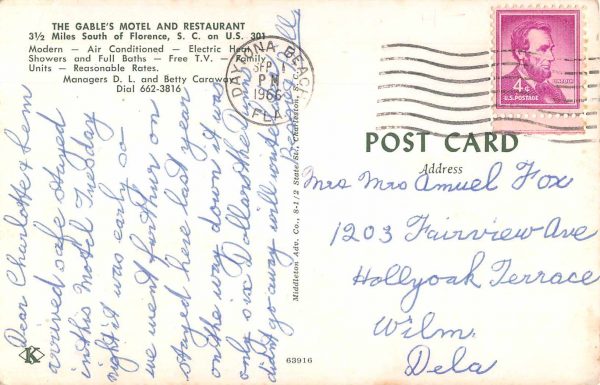 THE GABLE'S MOTEL AND RESTAURANT
3½ Miles South of Florence, S. C. on U.S. 301
Modern — Air Conditioned — Electric Heat
Showers and Full Baths — Free T.V. — Family
Units — Reasonable Rates.
Managers D. L. and Betty Caraway
Dial 662-3816
Dear Charlotte & Lem
arrived safe stayed
in this Motel Tuesday
night it was early so
we went further on
stayed here last year
on the way down it was
only six Dollars the
didnt go away will write
DAYTONA BEACH
SEP 1
PM
1966
FLA
4¢
U.S. POSTAGE
LINCOLN
POST CARD
Address
Mrs Mrs Amuel Fox
1203 Fairview Ave
Hollyoak Terrace
Wilm.
Dela
Middleton Adv. Co., 8-1/2 State St., Charleston, S. C.
K
63916